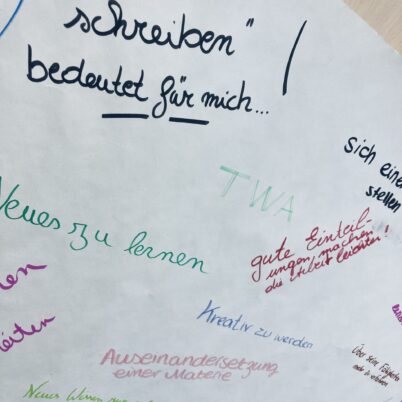 schreiben"
bedeutet für mich...
sich einer
stellen
TWA
Neues zu lernen
gute Einteil-
ungen machen
die Arbeit leichter!
Kreativ zu werden
Auseinandersetzung
einer Materie
Über seine
Neues Wissen